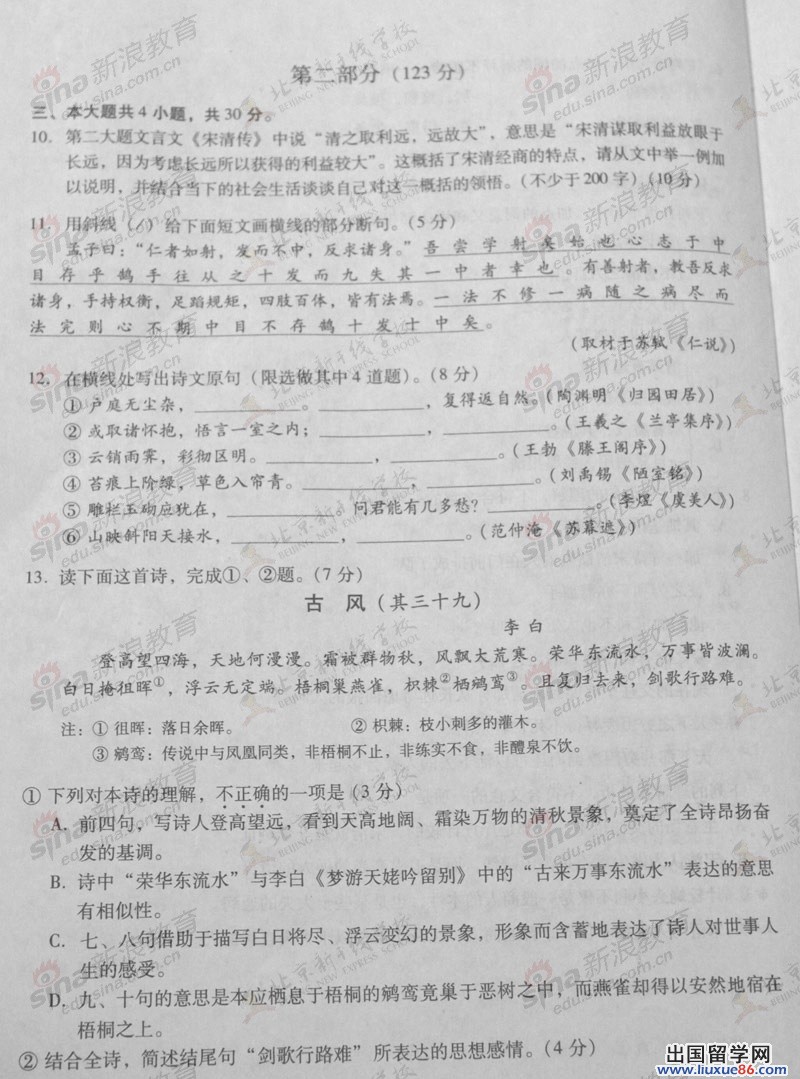 第二部分（123 分）
三、本大题共 4 小题，共 30 分。
10. 第二大题文言文《宋清传》中说“清之取利远，远故大”，意思是“宋清谋取利益放眼于
长远，因为考虑长远所以获得的利益较大”。这概括了宋清经商的特点，请从文中举一例加
以说明，并结合当下的社会生活谈谈自己对这一概括的领悟。（不少于 200 字）（10 分）
11. 用斜线（/）给下面短文画横线的部分断句。（5 分）
孟子曰：“仁者如射，发而不中，反求诸身。”吾尝学射矣始也心志于中
目存乎鹄手往从之十发而九失其一中者幸也。有善射者，教吾反求
诸身，手持权衡，足蹈规矩，四肢百体，皆有法焉。一法不修一病随之病尽而
法完则心不期中目不存鹄十发十中矣。
（取材于苏轼《仁说》）
12. 在横线处写出诗文原句（限选做其中 4 道题）。（8 分）
① 户庭无尘杂，__________。__________，复得返自然。（陶渊明《归园田居》）
② 或取诸怀抱，悟言一室之内；__________，__________。（王羲之《兰亭集序》）
③ 云销雨霁，彩彻区明。__________，__________。（王勃《滕王阁序》）
④ 苔痕上阶绿，草色入帘青。__________，__________。（刘禹锡《陋室铭》）
⑤ 雕栏玉砌应犹在，__________。问君能有几多愁？__________。（李煜《虞美人》）
⑥ 山映斜阳天接水，__________，__________。（范仲淹《苏幕遮》）
13. 读下面这首诗，完成①、②题。（7 分）
古 风（其三十九）
李 白
登高望四海，天地何漫漫。霜被群物秋，风飘大荒寒。荣华东流水，万事皆波澜。
白日掩徂晖①，浮云无定端。梧桐巢燕雀，枳棘②栖鹓鸾③。且复归去来，剑歌行路难。
注：① 徂晖：落日余晖。 ② 枳棘：枝小刺多的灌木。
③ 鹓鸾：传说中与凤凰同类，非梧桐不止，非练实不食，非醴泉不饮。
① 下列对本诗的理解，不正确的一项是（3 分）
A. 前四句，写诗人登高望远，看到天高地阔、霜染万物的清秋景象，奠定了全诗昂扬奋
发的基调。
B. 诗中“荣华东流水”与李白《梦游天姥吟留别》中的“古来万事东流水”表达的意思
有相似性。
C. 七、八句借助于描写白日将尽、浮云变幻的景象，形象而含蓄地表达了诗人对世事人
生的感受。
D. 九、十句的意思是本应栖息于梧桐的鹓鸾竟巢于恶树之中，而燕雀却得以安然地宿在
梧桐之上。
② 结合全诗，简述结尾句“剑歌行路难”所表达的思想感情。（4 分）
出国留学网
www.liuxue86.com
sina 新浪教育
edu.sina.com.cn
北京新干线学校
BEIJING NEW EXPRESS SCHOOL